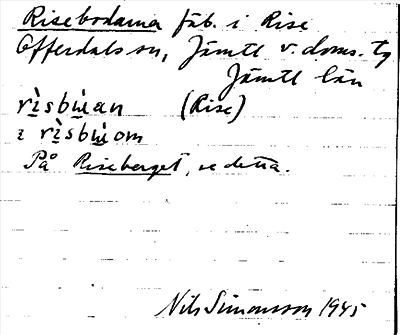 Risebodarna fäb. i Rise
Offerdals sn, Jämtl v. doms. tg
Jämtl län
rìsbùan (Rise)
i rìsbùom
På Riseberget, se detta.
Nils Simonsson 1945